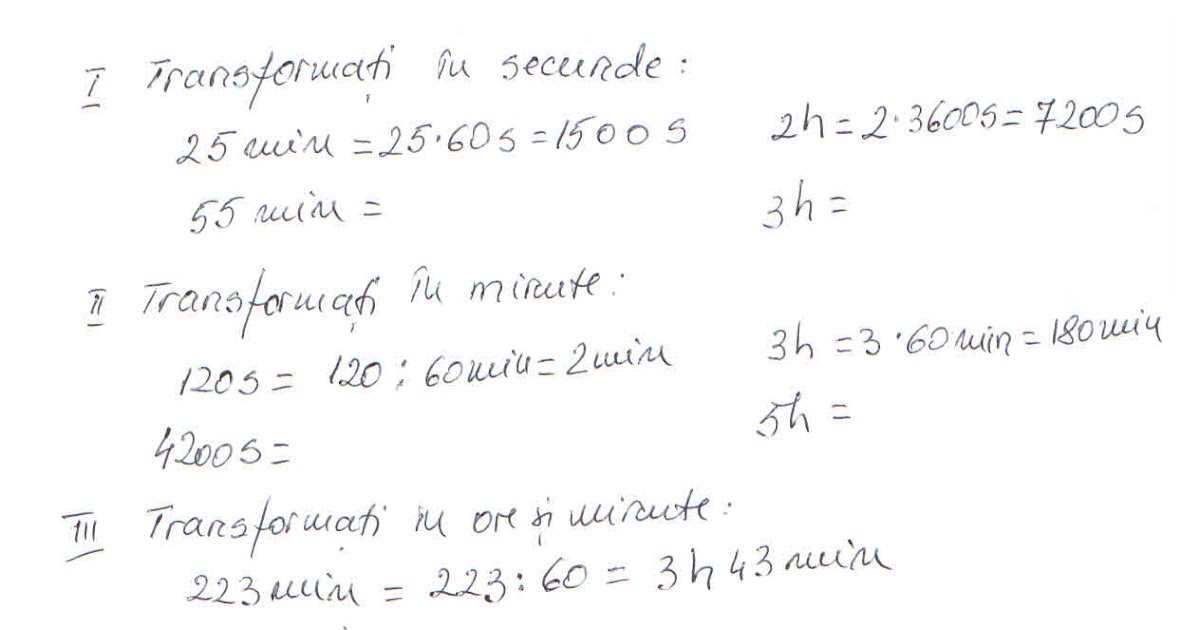 I Transformați în secunde:
25 min = 25·60s = 1500s 2h = 2·3600s = 7200s
55 min = 3h =
II Transformați în minute:
120s = 120 : 60min = 2min 3h = 3·60min = 180min
4200s = 5h =
III Transformați in ore și minute:
223min = 223 : 60 = 3h 43min